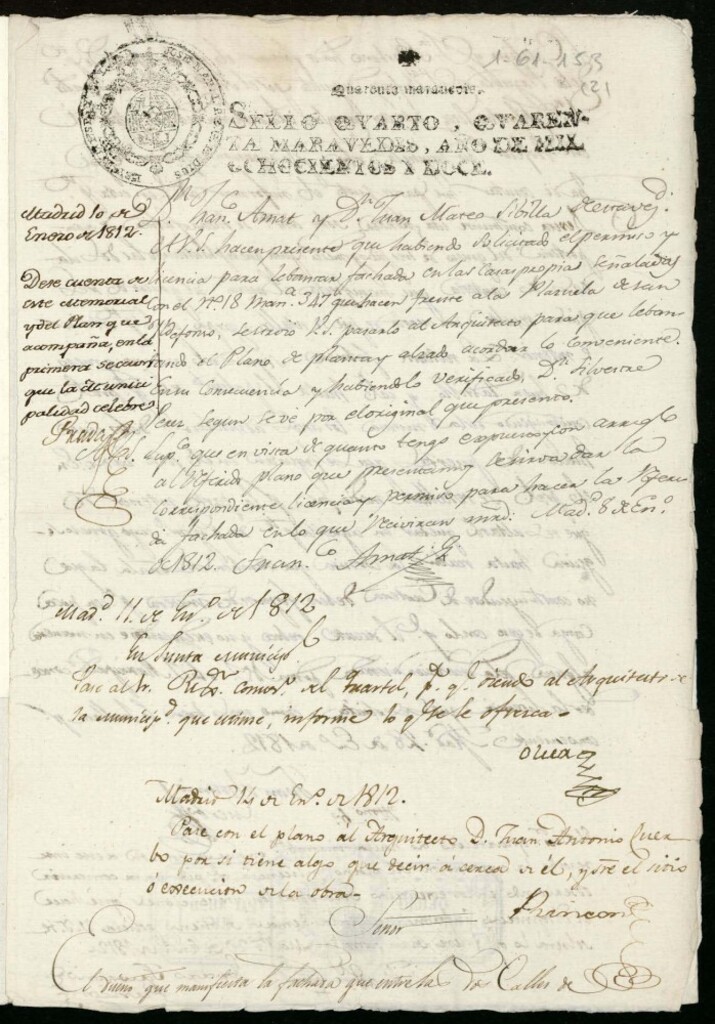 1-61-153
(2)
Quarenta maravedis.
SELLO QVARTO, QVAREN-
TA MARAVEDIS, AÑO DE MIL
OCHOCIENTOS Y DOCE.
Madrid 10 de
Enero de 1812.
Dese cuenta de
este memorial
y del Plan que
acompaña, en la
primera Sesion
que la Munici
palidad celebre
D. Fran.co Amat y D.n Juan Mateo Sibilla
A V.S. hacen presente, que habiendo solicitado el permiso y
licencia para lebantar fachada en las Casas propia señaladas
con el n.o 18 Man.a 347 que hacen frente a la Plazuela de san
Ildefonso, se sirvio V.S. pasarlo al Arquitecto para que leban
tando el Plano de planta y alzado acordar lo conveniente.
En su consecuencia y habiendolo verificado, D.n Silvestre
Perez segun se ve por el original que presento.
Sup.co que en vista de quanto tengo expuesto con arreglo
al referido plano que presentamos se sirva dar la
correspondiente licencia y permiso para hacer la refe
da fachada en lo que reciviran mrd: Mad.d 8 de En.o
de 1812. Fran.co Amat
Mad.d 11 de En.o de 1812
En Junta Municip.l
Pase al Sr. Rex.or comis.o del Quartel, p.a q.e oiendo al Arquitecto de
la Municip.d que estime, informe lo q.e se le ofrezca
Madrid 14 de En.o de 1812.
Pase con el plano al Arquitecto D. Juan Antonio Cuer
bo por si tiene algo que decir a cerca de él, y sre el sitio
ó execucion de la obra
Rincon
Señor
El diseño que manifiesta la fachada que entre las dos Calles de